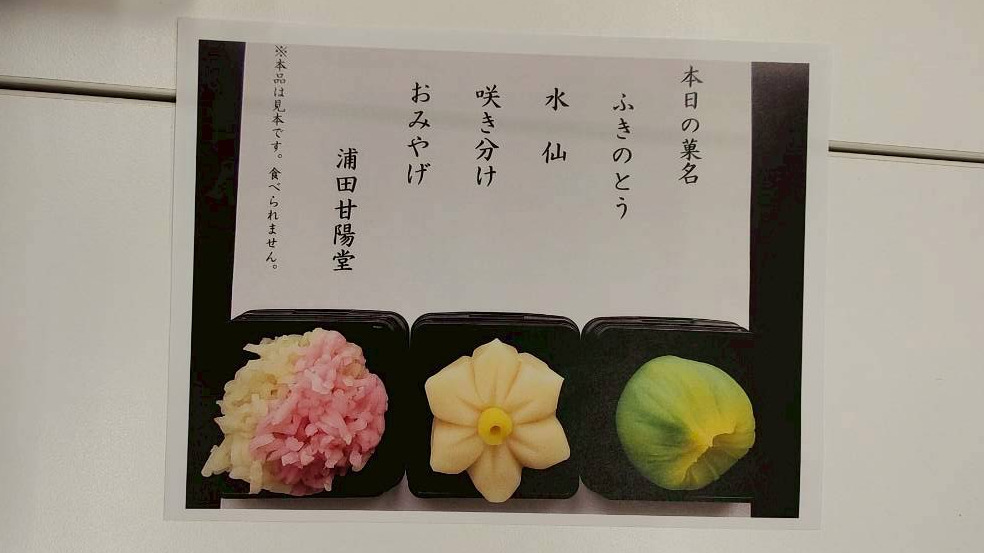 本日の菓名
ふきのとう
水仙
咲き分け
おみやげ
浦田甘陽堂
※本品は見本です。食べられません。